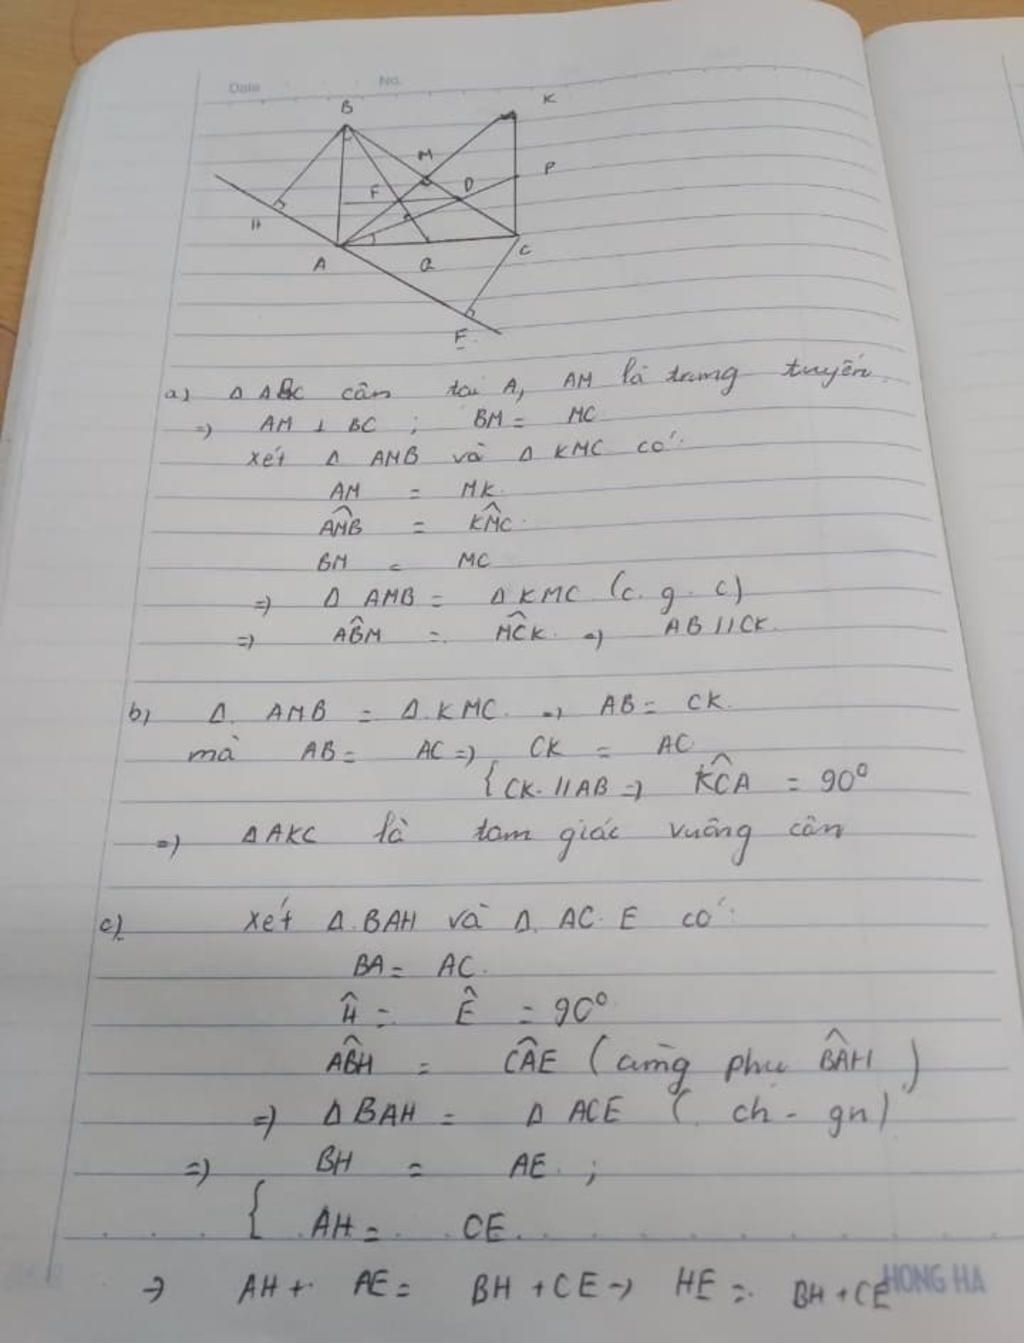 Date No.
B
K
M
P
F
D
H
A
Q
C
E
a) Δ ABC cân tại A, AM là trung tuyến
=) AM ⊥ BC ; BM = MC
xét Δ AMB và Δ KMC có:
AM = MK.
AMB^ = KMC^.
BM = MC
=) Δ AMB = Δ KMC (c. g. c)
=) ABM^ = MCK^. =) AB // CK.
b) Δ. AMB = Δ.KMC. =) AB = CK.
mà AB = AC =) CK = AC.
{ CK. // AB =) KCA^ = 90°
=) ΔAKC là tam giác vuông cân
c) Xét Δ.BAH và Δ. AC.E có:
BA = AC.
H^ = E^ = 90°
ABH^ = CAE^ (cùng phụ BAH^)
=) ΔBAH = Δ ACE (ch - gn)
=) BH = AE. ;
{ AH = CE.
→ AH + AE = BH + CE → HE = BH + CE
HONG HA